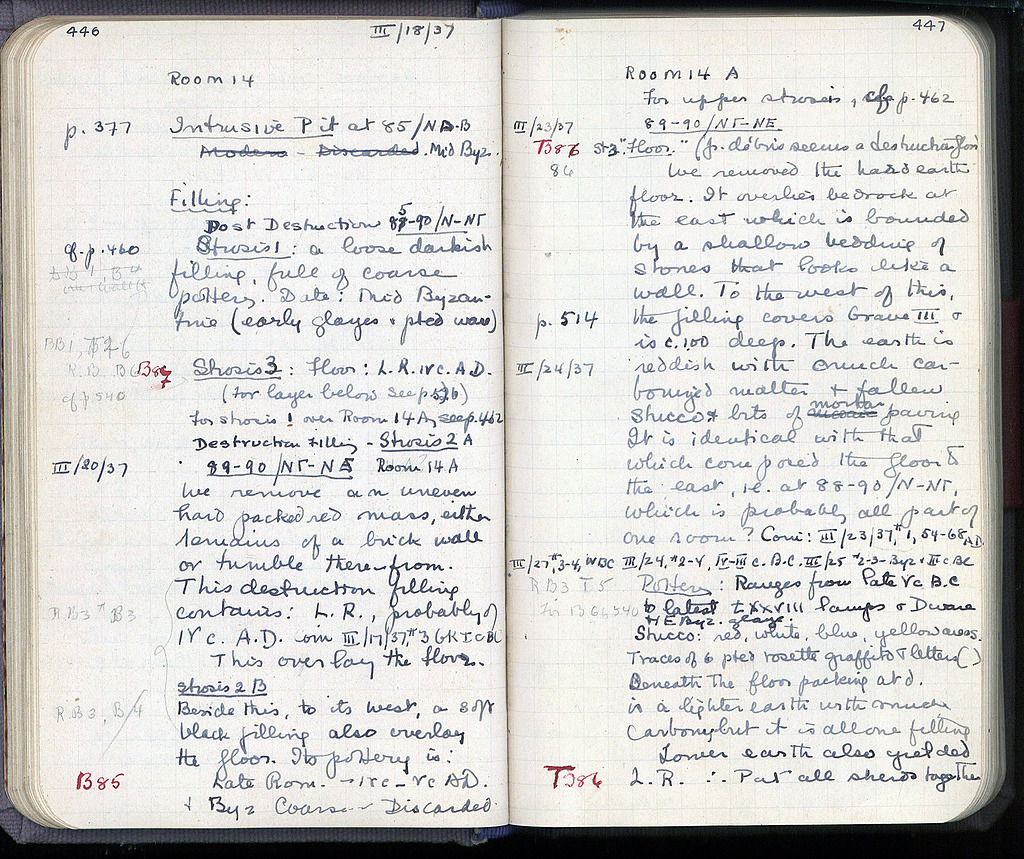 446
III/18/37
Room 14
p. 377
Intrusive Pit at 85/NA-B
Modern - Discarded. Mid Byz.
Filling:
Post Destruction 85-90/N-NΓ
cf. p. 460
Strosis 1: a loose darkish
filling, full of coarse
pottery. Date: Mid Byzan-
tine (early glazes + pted ware)
B87
Strosis 3: Floor: L.R. IVc. A.D.
(for layer below see p. 516)
cf p 540
For strosis 1 over Room 14 A, see p. 462
Destruction Filling - Strosis 2 A
III/20/37
89-90/NΓ-NE Room 14 A
We remove an uneven
hard packed red mass, either
remains of a brick wall
or tumble therefrom.
This destruction filling
R.B3 B3
contains: L.R., probably of
IVc. A.D. coin III/17/37, #3 GK I c BC
This overlay the floor.
Strosis 2 B
R.B3, B/4
Beside this, to its west, a soft
black filling also overlay
the floor. Its pottery is:
B85
Late Rom. → IVc - Vc AD.
+ Byz Coarse - Discarded.
447
Room 14 A
For upper strosis, cf p. 462
III/23/37
89-90/NΓ-NE
TB86
St 3 "Floor." (p. débris seems a destruction floor)
86
We removed the hard earth
floor. It overlies bedrock at
the east which is bounded
by a shallow bedding of
stones that looks like a
wall. To the west of this,
p. 514
the filling covers Grave III +
is c. 100 deep. The earth is
III/24/37
reddish with much car-
bonized matter + fallen
stucco + bits of mortar paving
It is identical with that
which composed the floor to
the east, i.e. at 88-90/N-NΓ,
which is probably all part of
one room? Coni: III/23/37, #1, 54-68 A.D.
III/27, #3-4, IV BC III/24, #2-4, IV-III c. B.C. III/25 #2-3- Byz + III c BC
R B3 T 5
Pottery: Ranges from late Vc B.C
to latest t XXVIII lamps + D ware
+ E Byz. glaze.
Stucco: red, white, blue, yellow areas.
Traces of 6 pted rosette graffito + letters ( )
Beneath the floor packing at d.
is a lighter earth with much
carbon, but it is all one filling
Lower earth also yielded
TB86
L.R. ∴ Put all sherds together